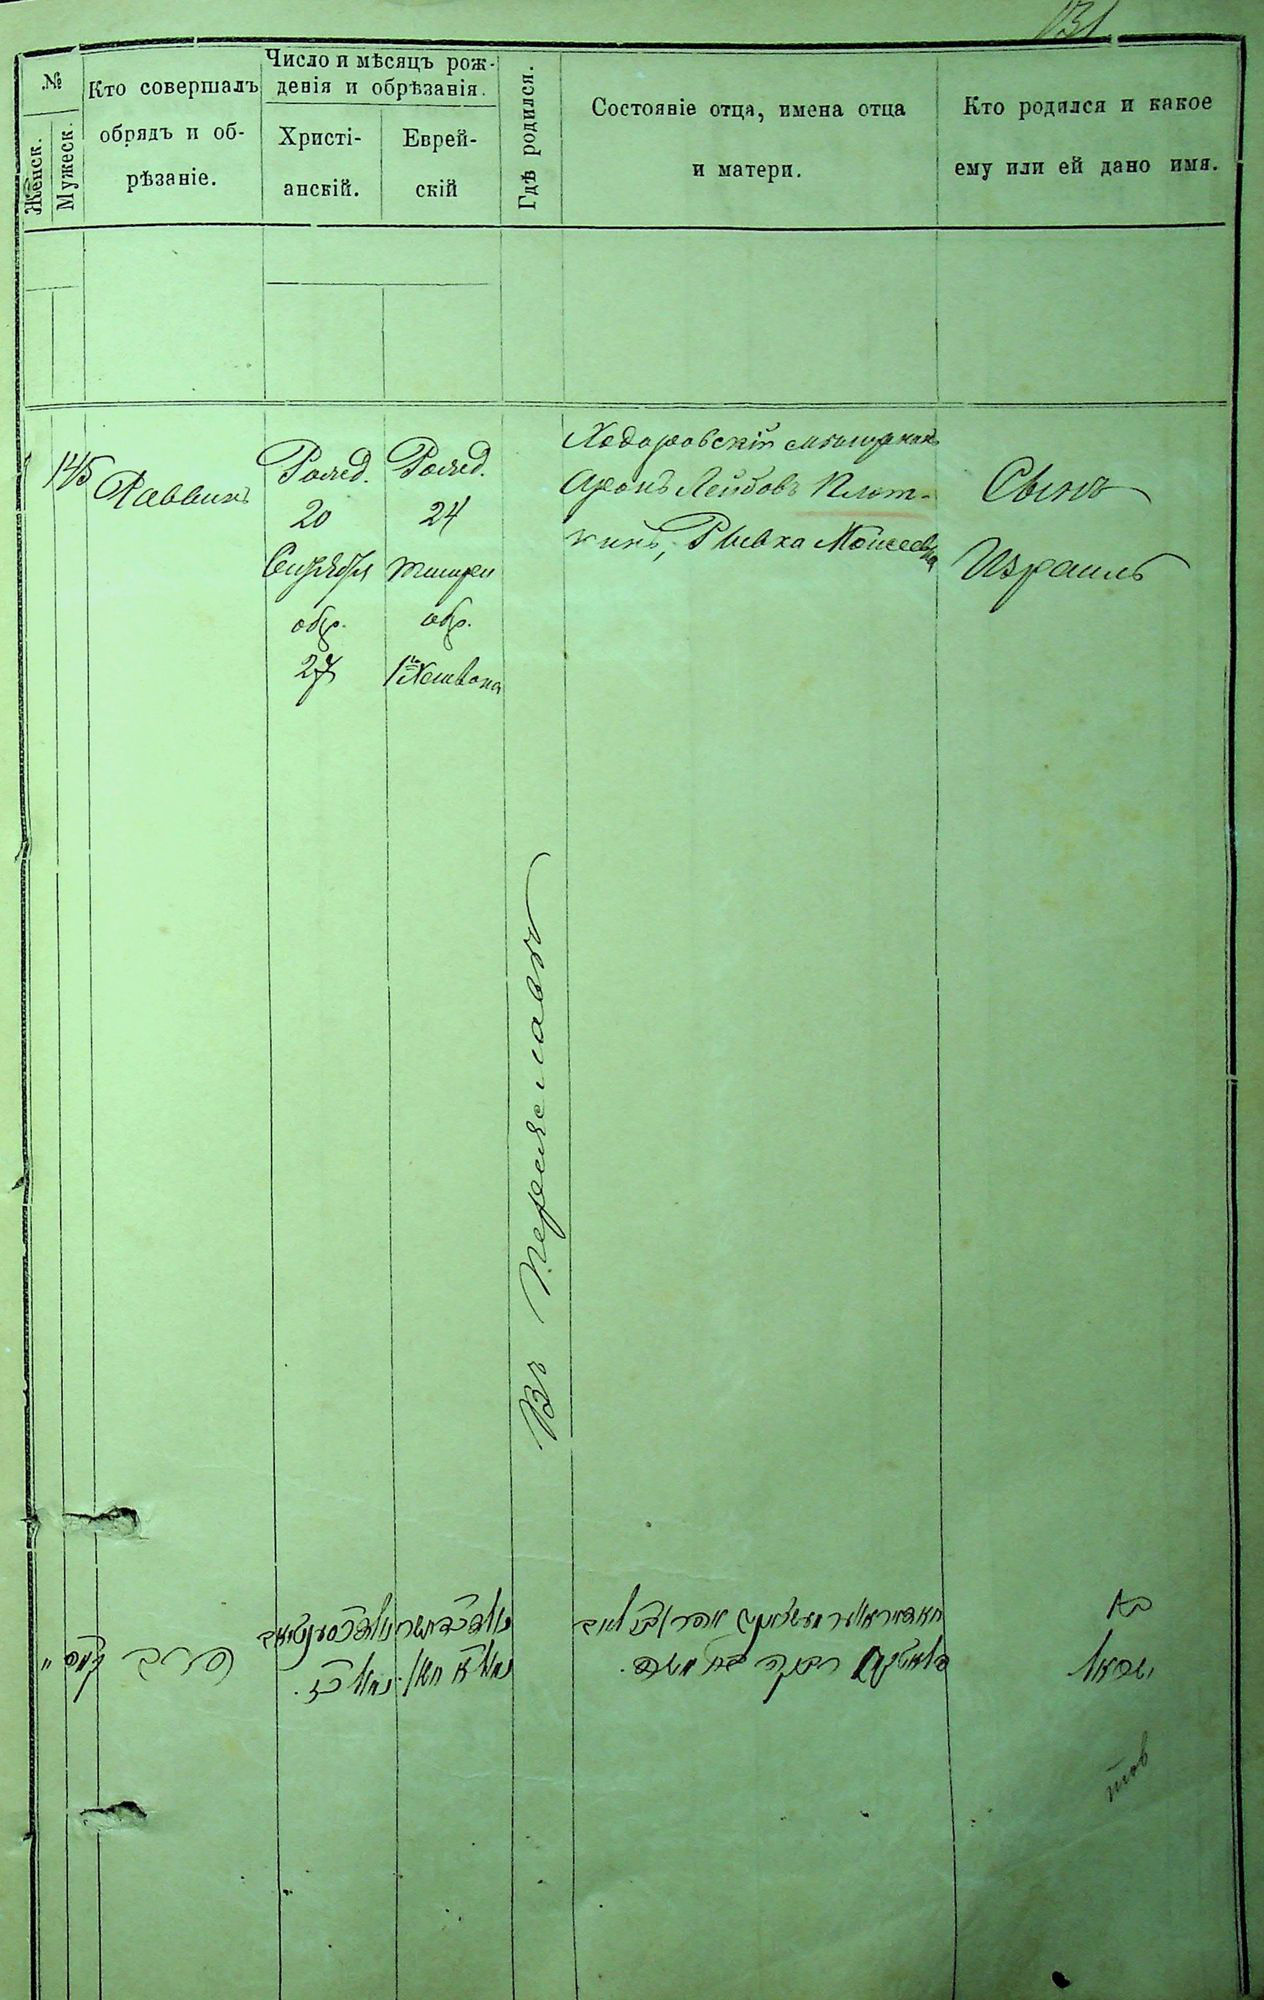 131
№
Женск.
Мужеск.
Кто совершалъ
обрядъ и об-
рѣзаніе.
Число и мѣсяцъ рож-
денія и обрѣзанія.
Христі-
анскій.
Еврей-
скій
Гдѣ родился.
Состояніе отца, имена отца
и матери.
Кто родился и какое
ему или ей дано имя.
145
Раввинъ
Рожд.
20
Сентября
обр.
27
Рожд.
24
Тишри
обр.
1го Хешвана
Въ Переяславѣ
Ходоровскій мѣщанинъ
Аронъ Лейбовъ Плот-
кинъ, Рывка Моисеевна
Сынъ
Израиль
הרב
נימול כז
בן
ישראל